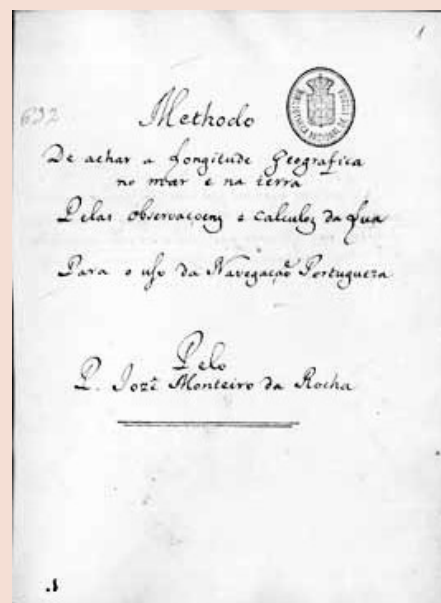 1
692
Methodo
De achar a Longitude Geografica
no mar e na terra
Pelas observaçoens e calculos da Lua
Para o uso da Navegação Portugueza
Pelo
P. Jozé Monteiro da Rocha
.1